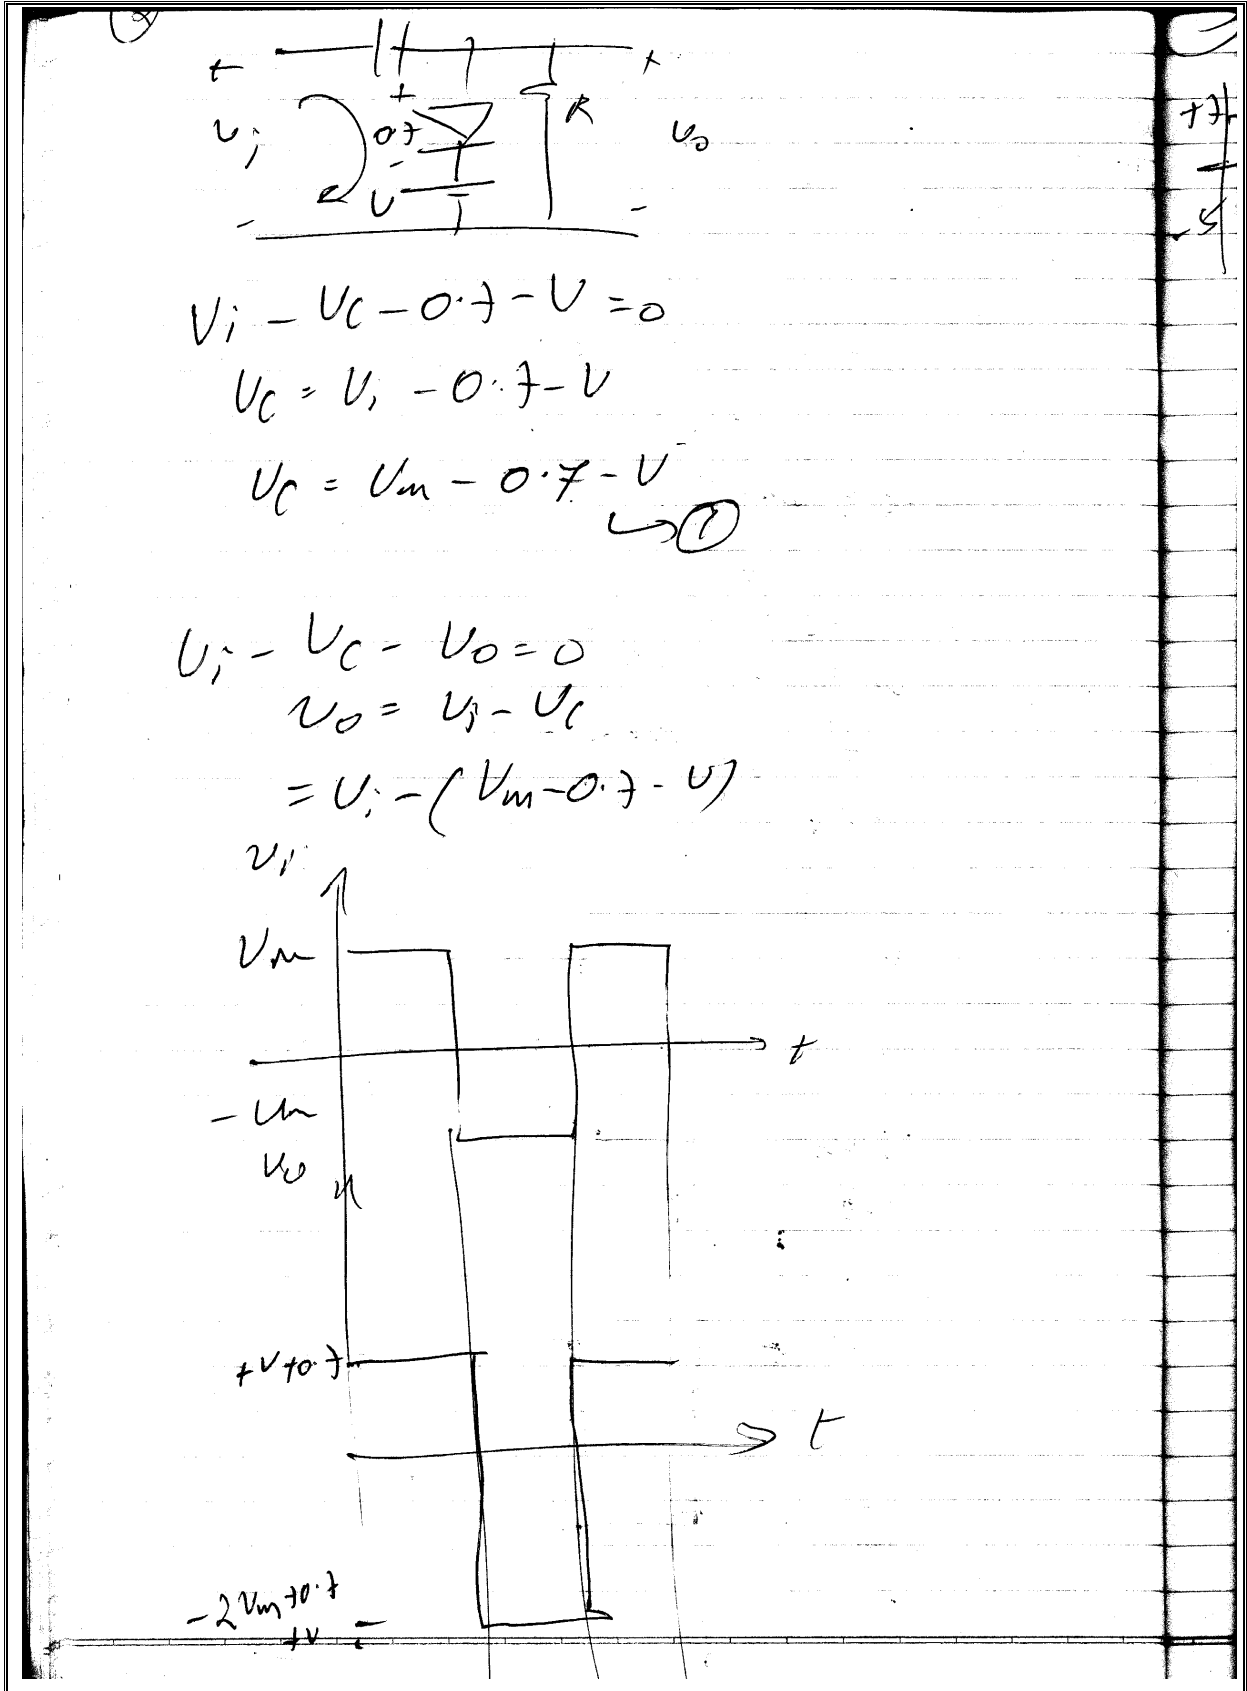 + +
+ R
Vi 0.7 Vo
-
V
- -
Vi - Vc - 0.7 - V = 0
Vc = Vi - 0.7 - V
Vc = Vm - 0.7 - V
Vi - Vc - Vo = 0
Vo = Vi - Vc
= Vi - (Vm - 0.7 - V)
Vi
Vm
t
-Vm
Vo
+V+0.7
t
-2Vm+0.7
+V
+7
-5